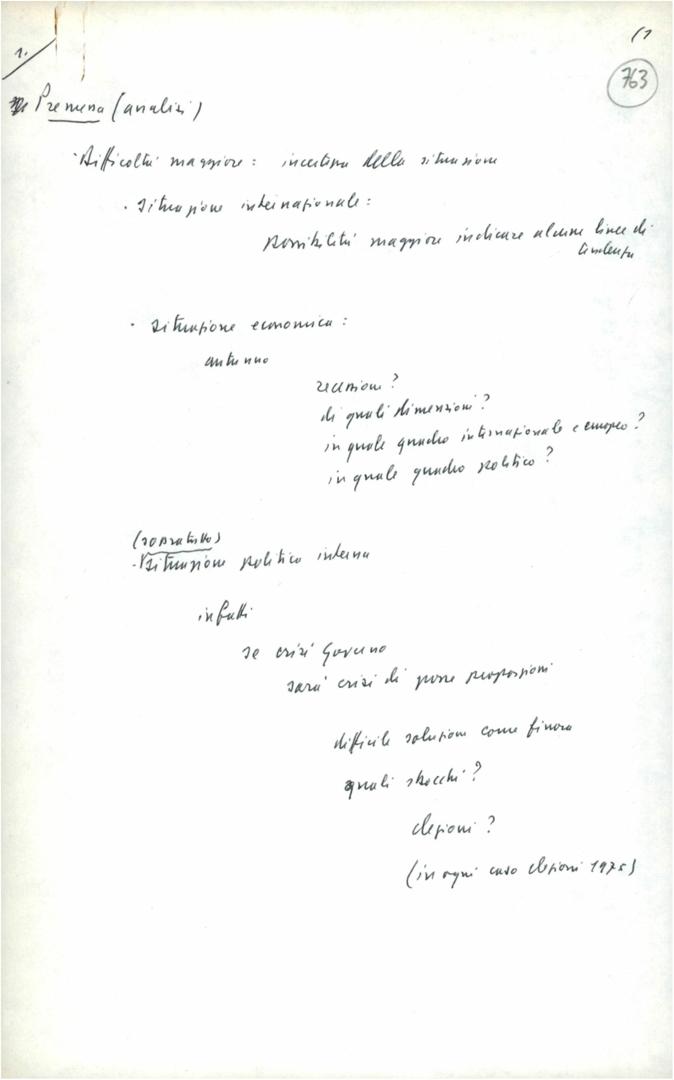 (1
1.
763
Premessa (analisi)
Difficoltà maggiore: incertezza della situazione
· Situazione internazionale:
possibilità maggiore indicare alcune linee di
tendenza
· Situazione economica:
autunno
recessione?
di quali dimensioni?
in quale quadro internazionale e europeo?
in quale quadro politico?
(sopratutto)
· Situazione politica interna
infatti
se crisi Governo
sarà crisi di grosse proporzioni
difficile soluzione come finora
quali sbocchi?
elezioni?
(in ogni caso elezioni 1975)